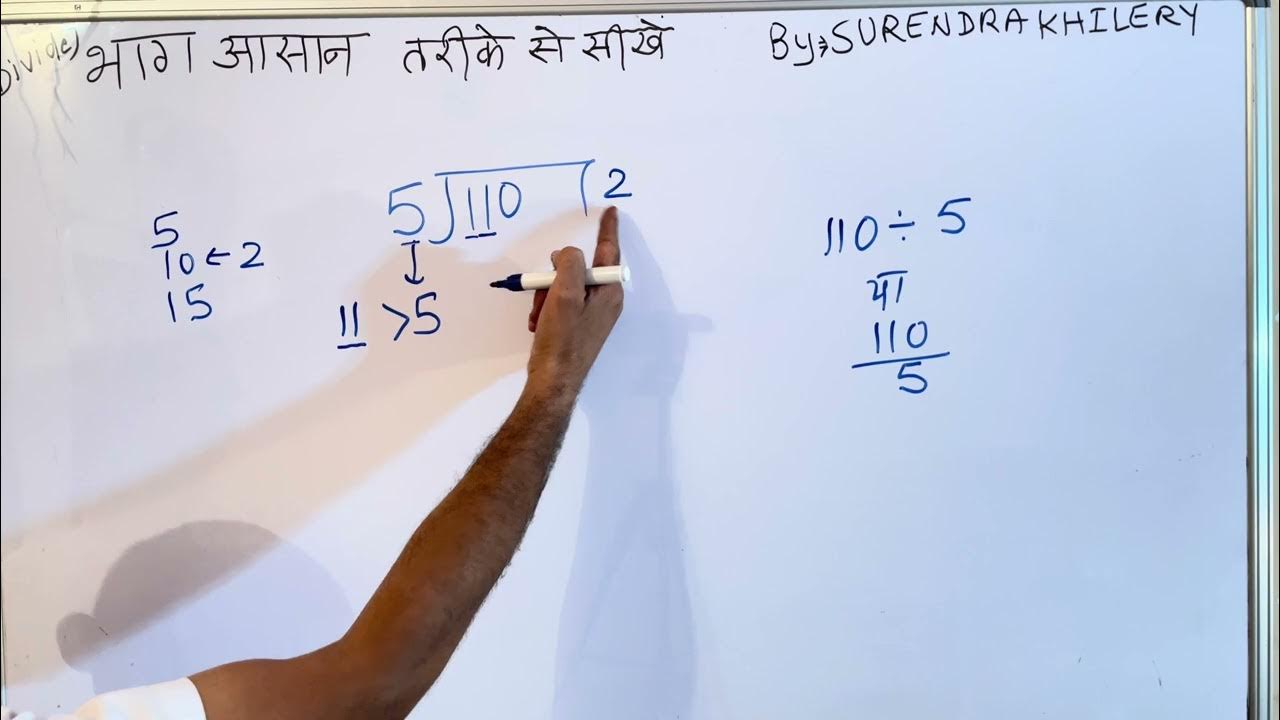 (Divide) भाग आसान तरीके से सीखें By⇒SURENDRA KHILERY
5
10 ← 2
15
5 ) 110 ( 2
↓
11 > 5
110 ÷ 5
या
110
5